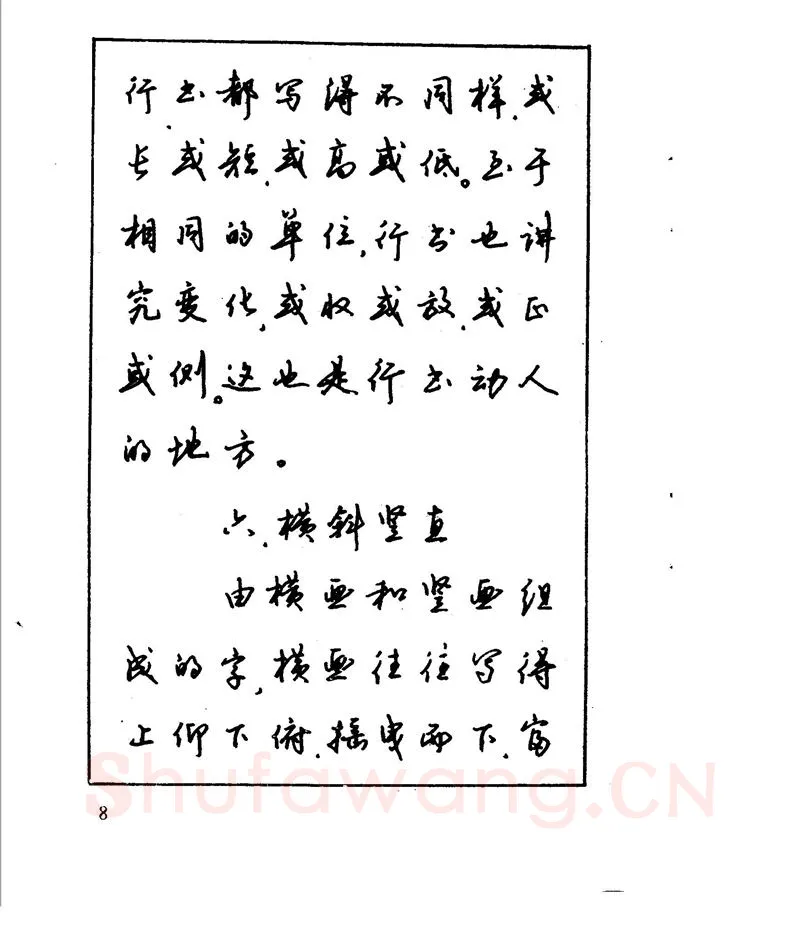 行书都写得不同样，或
长或短，或高或低。至于
相同的单位，行书也讲
究变化，或收或放，或正
或侧。这也是行书动人
的地方。
六、横斜竖直
由横画和竖画组
成的字，横画往往写得
上仰下俯，摇曳而下，富
Shufawang.CN
8